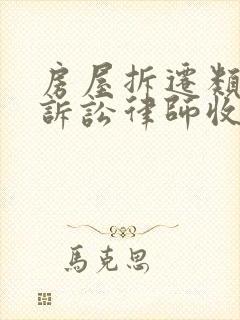 房屋拆遷類
訴訟律師收
馬克思